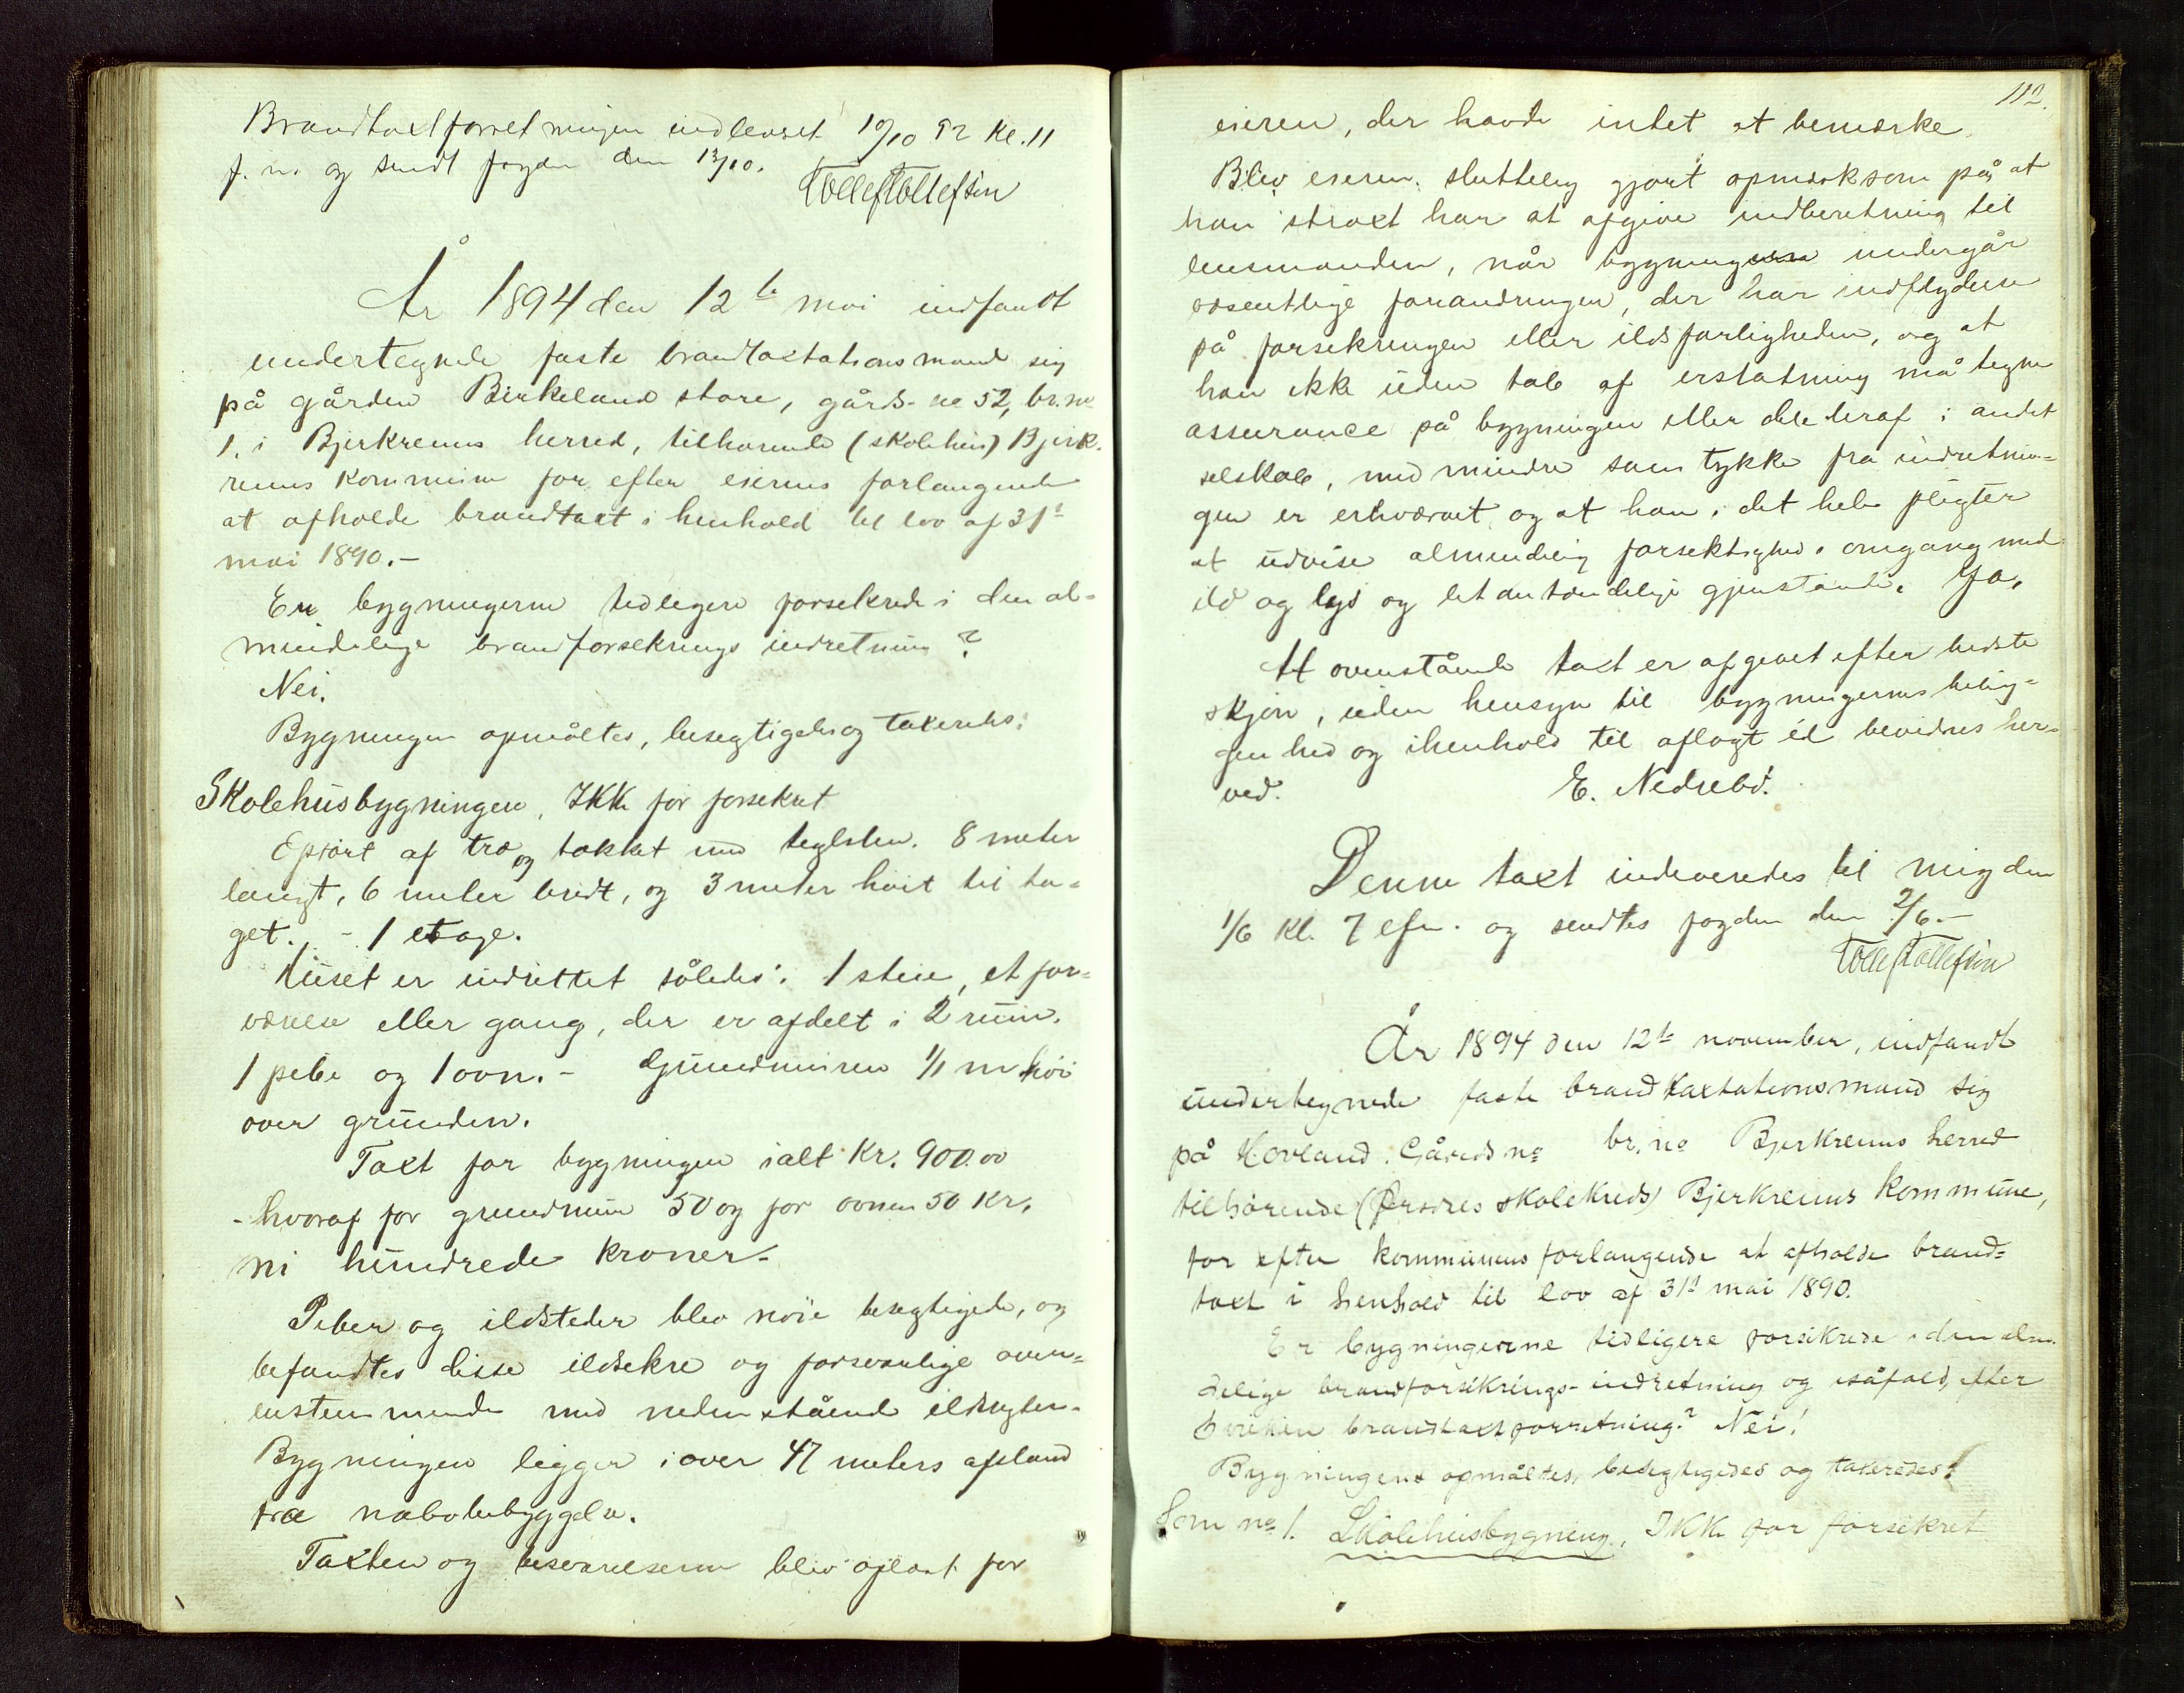 Brandtaxtforretningen indleveret 10/10 92 kl. 11
f. m. og sendt fogden den 12/10.
Tollef Tollefsen
År 1894 den 12te mai indfandt
undertegnede faste brandtaxtationsmand sig
på gården Birkeland store, gårds-no 52, br. no
1, i Bjerkreims herred, tilhørende (skolehus) Bjerk-
reims kommune for efter eierens forlangende
at afholde brandtaxt i henhold til lov af 31te
mai 1890.-
Er bygningerne tidligere forsekrede i den al-
mindelige brandforsekrings indretning?
Nei.
Bygningen opmåltes, besegtigedes og taxeredes:
Skolehusbygningen. Ikke før forsekret
Opført af træ og takket med teglsten. 8 meter
langt, 6 meter bredt, og 3 meter høit til ta-
get. - 1 etage.
Huset er indrettet således: 1 stue, et for-
værelse eller gang, der er afdelt i 2 rum.
1 pibe og 1 ovn. - Grundmuren 1/1 m høi
over grunden.
Taxt for bygningen ialt kr. 900.00
- hvoraf for grundmur 50 og for ovnen 50 kr.
ni hundrede kroner.
Piber og ildsteder blev nøie besegtigede, og
befandtes disse ildsekre og forsvarlige over-
enstemmende med nedenstående
Bygningen ligger i over 47 meters afstand
fra nabobebyggelse.
Taxten og besvarelserne blev oplæst for
112.
eieren, der havde intet at bemærke.
Blev eieren sluttelig gjort opmerksom på, at
han straxt har at afgive indberetning til
lensmanden, når bygningen undergår
væsentlige forandringer, der har indflydelse
på forsekringen eller ildsfarligheden, og at
han ikke uden tab af erstatning må tegne
assurance på bygningen eller dele deraf i andet
selskab, med mindre samtykke fra indretnin-
gen er erhvervet og at han i det hele pligter
at udvise almindelig forsektighed i omgang med
ild og lys og let antændelige gjenstande. Ja,
At ovenstående taxt er afgivet efter bedste
skjøn, uden hensyn til bygningernes belig-
genhed og i henhold til aflagt éd bevidnes her-
ved. E. Nedrebø.
Denne taxt indleveredes til mig den
1/6 kl. 7 efm. og sendtes fogden den 2/6.-
Tollef Tollefsen
År 1894 den 12te november, indfandt
undertegnede faste brandtaxtationsmand sig
på Hovland. Gårds no br. no Bjerkreims herred
tilhørende (Ørsdres skolekreds) Bjerkreims kommune,
for efter kommunens forlangende at afholde brand-
taxt i henhold til lov af 31te mai 1890.
Er bygningerne tidligere forsikrede i den alm.
delige brandforsikrings-indretning og isåfald, efter
hvilken brandtaxtforretning? Nei!
Bygningene opmåltes, besegtigedes og taxeredes:
Som no 1. Skolehusbygning, Ikke før forsikret